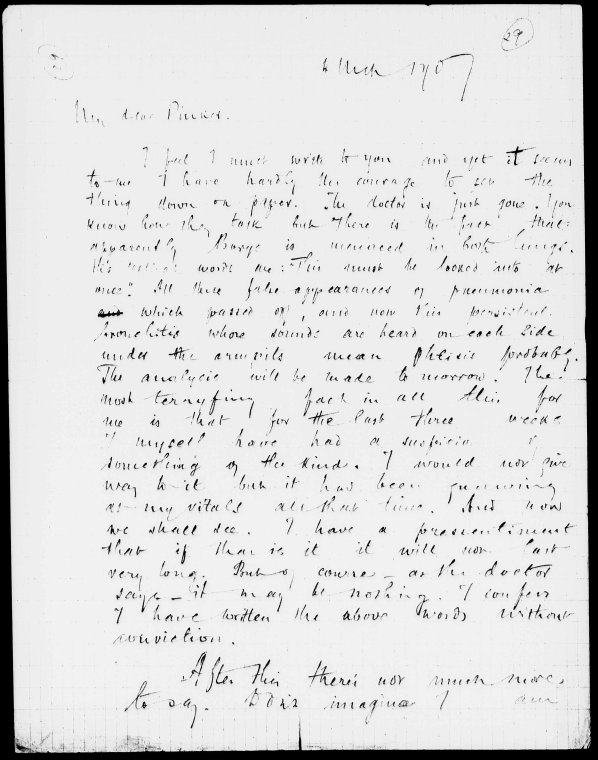 29
6 Mch 1907
My dear Pinker.
I feel I must write to you and yet it seems
to me I have hardly the courage to set the
thing down on paper. The doctor is just gone. You
know how they talk but there is the fact that:
apparently Borys is menaced in both lungs.
His words are: "This must be looked into at
once." All these false appearances of pneumonia
which passed off, and now this persistent
bronchitis whose sounds are heard on each side
under the armpits mean phtisis probably.
The analysis will be made to morrow. The
most terryfing fact in all this for
me is that for the last three weeks
I myself have had a suspicion of
something of the kind. I would not give
way to it but it had been gnawing
at my vitals all that time. And now
we shall see. I have a presentiment
that if that is it it will not last
very long. But of course – as the doctor
says – it may be nothing. I confess
I have written the above words without
conviction.
After this there's not much more
to say. Don't imagine I am